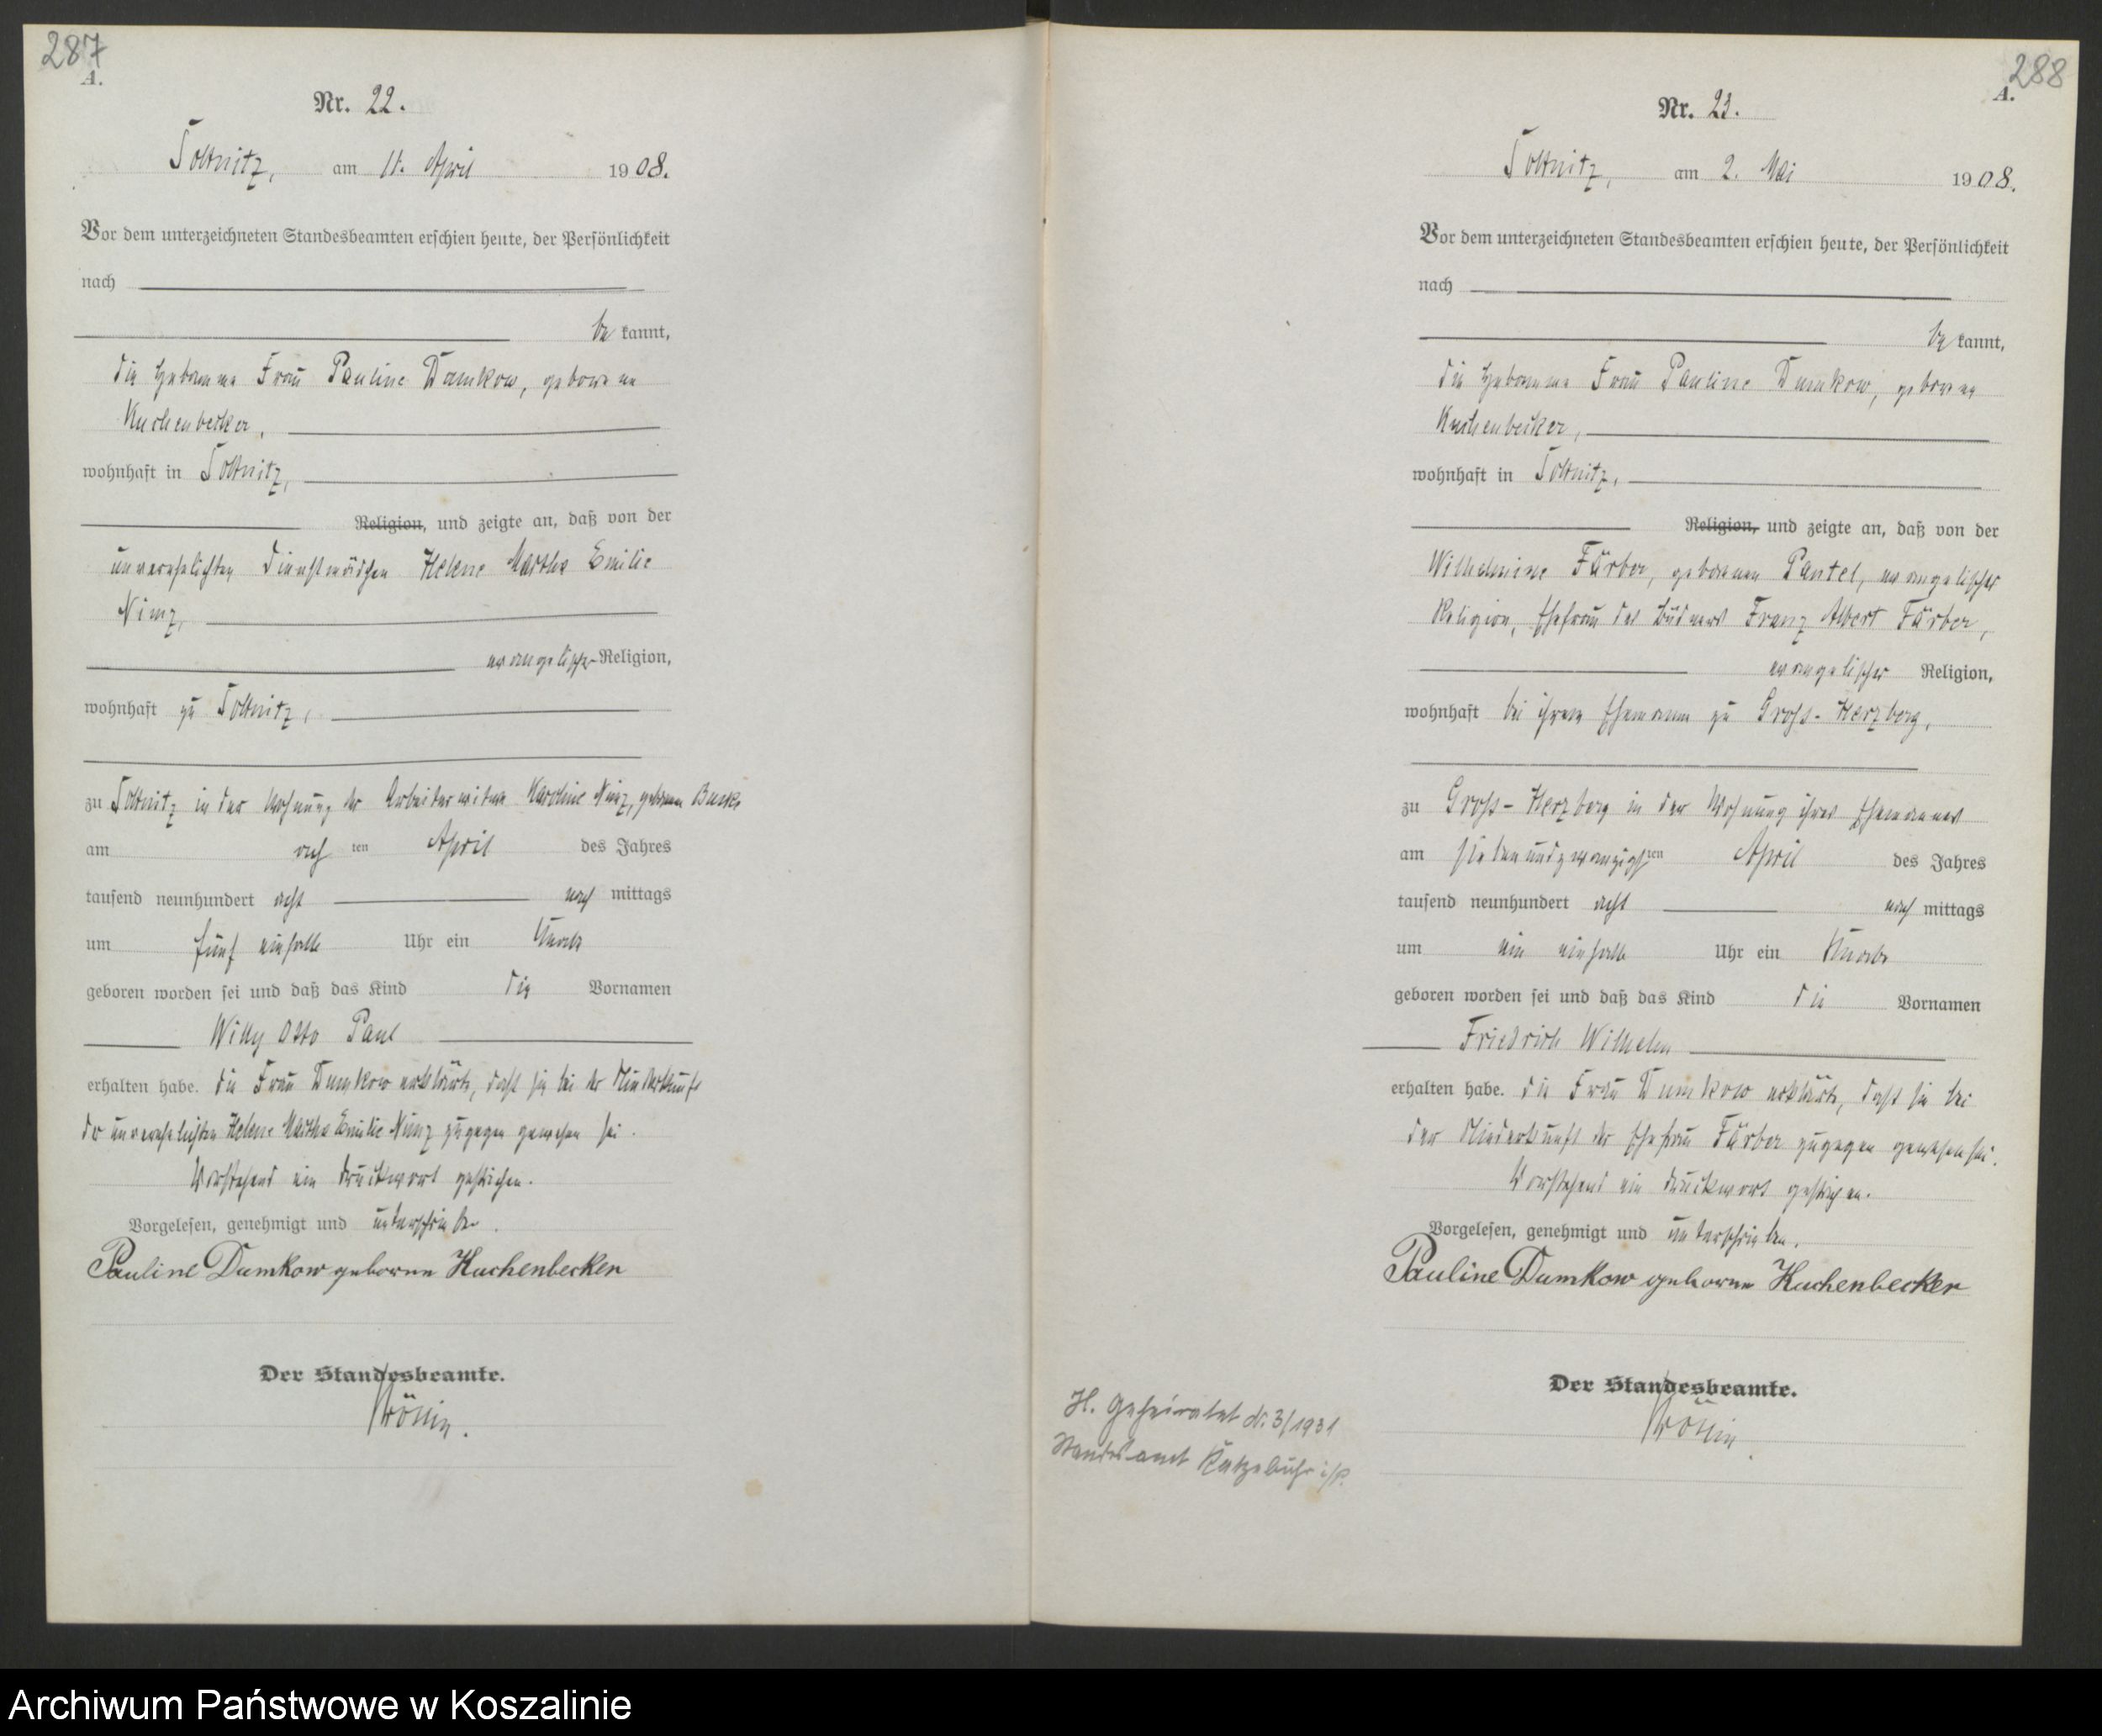 287
A.
Nr. 22.
Soltnitz, am 11. April 1908.
Vor dem unterzeichneten Standesbeamten erschien heute, der Persönlichkeit
nach
be kannt,
die Hebamme Frau Pauline Dumkow, geborene
Kuchenbecker,
wohnhaft in Soltnitz,
Religion, und zeigte an, daß von der
unverehelichten Dienstmädchen Helene Martha Emilie
Nimz,
evangelischer Religion,
wohnhaft zu Soltnitz,
zu Soltnitz in der Wohnung der Arbeiterwitwe Karoline Nimz, geborene
am ten April des Jahres
tausend neunhundert acht nach mittags
um fünf einhalb Uhr ein Knabe
geboren worden sei und daß das Kind die Vornamen
Willy Otto Paul
erhalten habe. Die Frau Dumkow erklärte, daß sie bei der Niederkunft
der unverehelichten Helene Martha Emilie Nimz zugegen gewesen sei.
Vorstehend ein Druckwort gestrichen.
Vorgelesen, genehmigt und unterschrieben.
Pauline Dumkow geborene Kuchenbecker
Der Standesbeamte.
288
A.
Nr. 23.
Soltnitz, am 2. Mai 1908.
Vor dem unterzeichneten Standesbeamten erschien heute, der Persönlichkeit
nach
be kannt,
die Hebamme Frau Pauline Dumkow, geborene
Kuchenbecker,
wohnhaft in Soltnitz,
Religion, und zeigte an, daß von der
Wilhelmine Färber, geborenen Pantel, evangelischer
Religion, Ehefrau des Büdners Franz Albert Färber,
evangelischer Religion,
wohnhaft bei ihrem Ehemanne zu Groß-Herzberg,
zu Groß-Herzberg in der Wohnung ihres Ehemannes
am siebenundzwanzigsten April des Jahres
tausend neunhundert acht nach mittags
um ein einhalb Uhr ein Knabe
geboren worden sei und daß das Kind die Vornamen
Friedrich Wilhelm
erhalten habe. Die Frau Dumkow erklärte, daß sie bei
der Niederkunft der Ehefrau Färber zugegen gewesen sei.
Vorstehend ein Druckwort gestrichen.
Vorgelesen, genehmigt und unterschrieben.
Pauline Dumkow geborene Kuchenbecker
Der Standesbeamte.
H. Geheiratet Nr. 3/1931
Standesamt Ratzebuhr i/P.
Archiwum Państwowe w Koszalinie